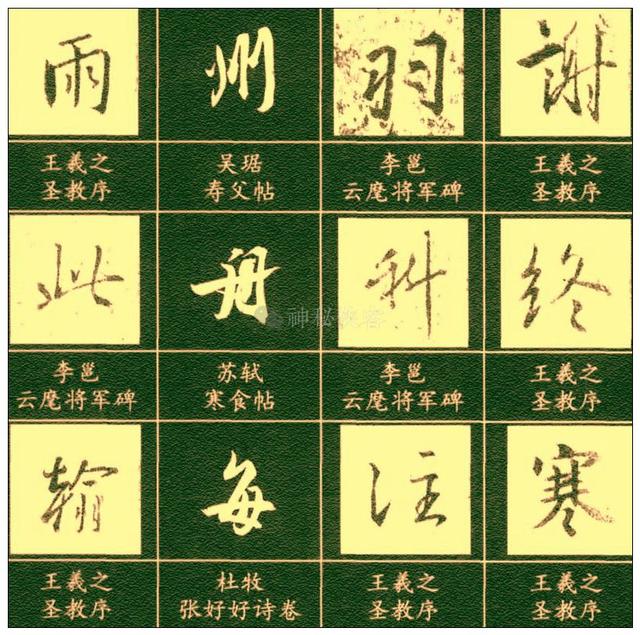 雨 州 羽 謝
王羲之 吴琚 李邕 王羲之
圣教序 寿父帖 云麾将军碑 圣教序
此 舟 科 終
神秘侠客
李邕 苏轼 李邕 王羲之
云麾将军碑 寒食帖 云麾将军碑 圣教序
翰 每 注 寒
王羲之 杜牧 王羲之 王羲之
圣教序 张好好诗卷 圣教序 圣教序